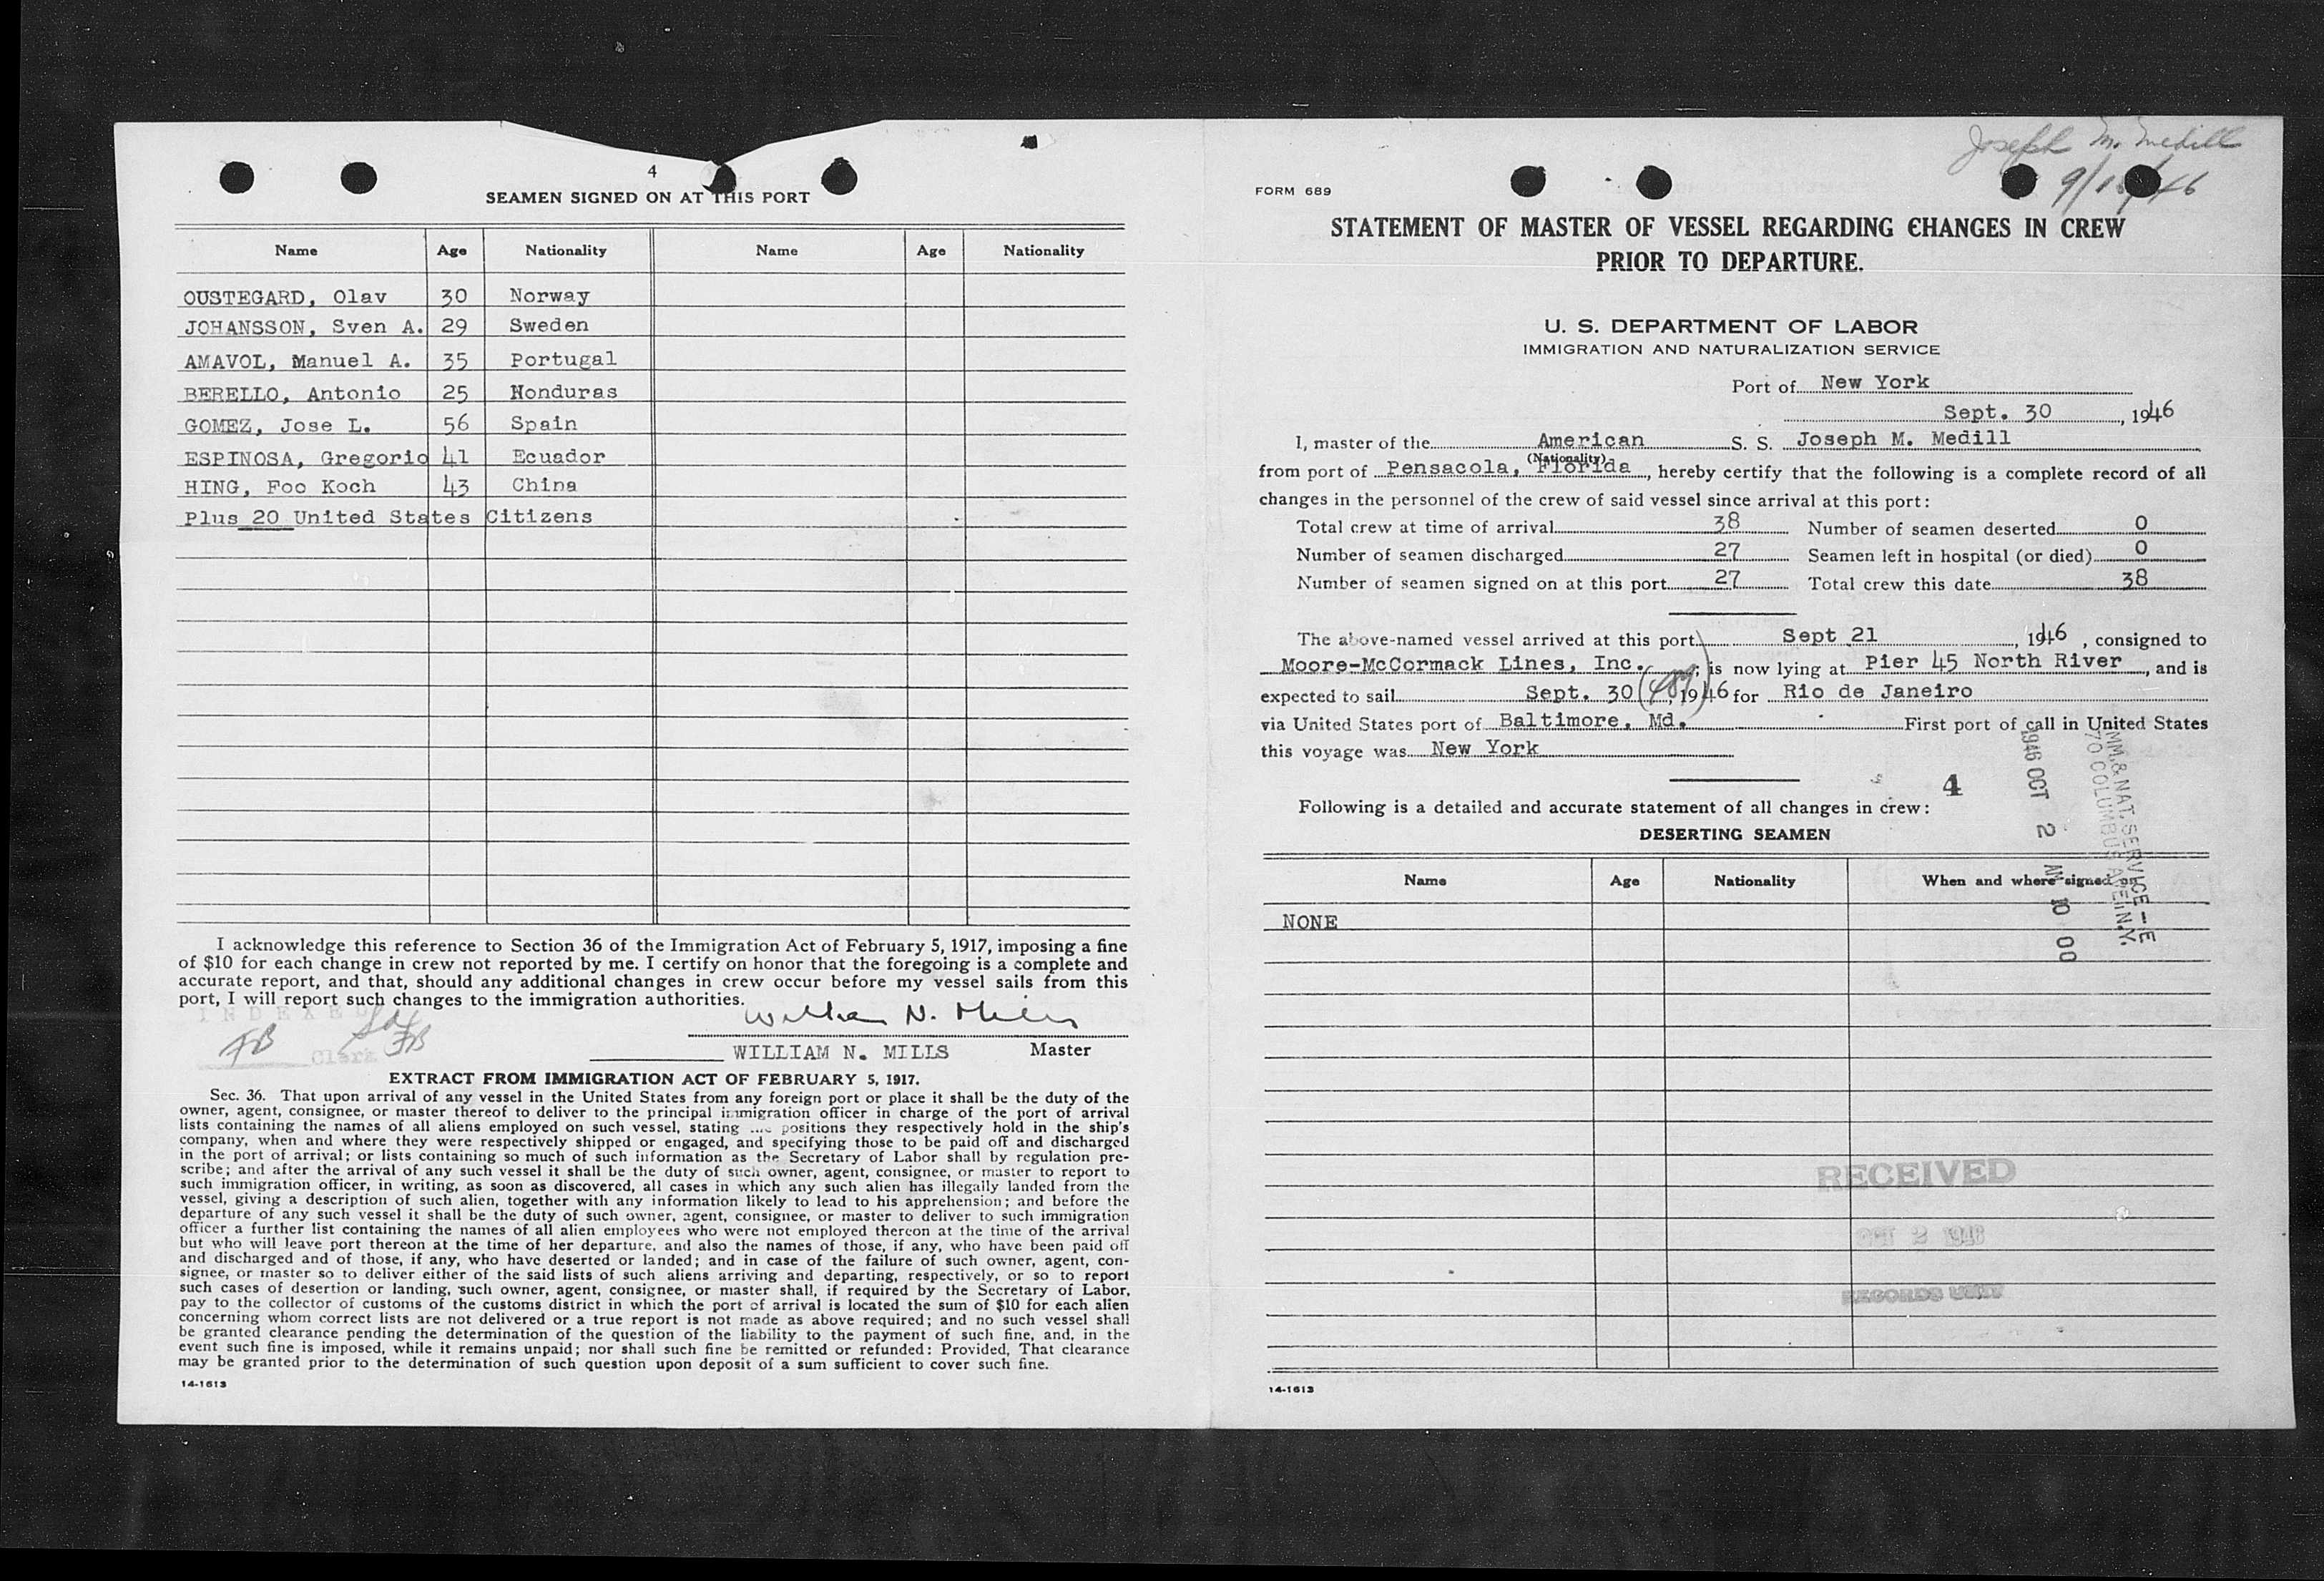 4
SEAMEN SIGNED ON AT THIS PORT
Name Age Nationality Name Age Nationality
OUSTEGARD, Olav 30 Norway
JOHANSSON, Sven A. 29 Sweden
AMAVOL, Manuel A. 35 Portugal
BERELLO, Antonio 25 Honduras
GOMEZ, Jose L. 56 Spain
ESPINOSA, Gregorio 41 Ecuador
HING, Foo Koch 43 China
Plus 20 United States Citizens
I acknowledge this reference to Section 36 of the Immigration Act of February 5, 1917, imposing a fine
of $10 for each change in crew not reported by me. I certify on honor that the foregoing is a complete and
accurate report, and that, should any additional changes in crew occur before my vessel sails from this
port, I will report such changes to the immigration authorities.
INDEXED
FB Clerk
William N. Mills
WILLIAM N. MILLS Master
EXTRACT FROM IMMIGRATION ACT OF FEBRUARY 5, 1917.
Sec. 36. That upon arrival of any vessel in the United States from any foreign port or place it shall be the duty of the
owner, agent, consignee, or master thereof to deliver to the principal immigration officer in charge of the port of arrival
lists containing the names of all aliens employed on such vessel, stating positions they respectively hold in the ship's
company, when and where they were respectively shipped or engaged, and specifying those to be paid off and discharged
in the port of arrival; or lists containing so much of such information as the Secretary of Labor shall by regulation pre-
scribe; and after the arrival of any such vessel it shall be the duty of such owner, agent, consignee, or master to report to
such immigration officer, in writing, as soon as discovered, all cases in which any such alien has illegally landed from the
vessel, giving a description of such alien, together with any information likely to lead to his apprehension; and before the
departure of any such vessel it shall be the duty of such owner, agent, consignee, or master to deliver to such immigration
officer a further list containing the names of all alien employees who were not employed thereon at the time of the arrival
but who will leave port thereon at the time of her departure, and also the names of those, if any, who have been paid off
and discharged and of those, if any, who have deserted or landed; and in case of the failure of such owner, agent, con-
signee, or master so to deliver either of the said lists of such aliens arriving and departing, respectively, or so to report
such cases of desertion or landing, such owner, agent, consignee, or master shall, if required by the Secretary of Labor,
pay to the collector of customs of the customs district in which the port of arrival is located the sum of $10 for each alien
concerning whom correct lists are not delivered or a true report is not made as above required; and no such vessel shall
be granted clearance pending the determination of the question of the liability to the payment of such fine, and, in the
event such fine is imposed, while it remains unpaid; nor shall such fine be remitted or refunded: Provided, That clearance
may be granted prior to the determination of such question upon deposit of a sum sufficient to cover such fine.
14-1613
Joseph M. Medill
FORM 689
STATEMENT OF MASTER OF VESSEL REGARDING CHANGES IN CREW
PRIOR TO DEPARTURE.
U. S. DEPARTMENT OF LABOR
IMMIGRATION AND NATURALIZATION SERVICE
Port of New York
Sept. 30, 1946
I, master of the American S. S. Joseph M. Medill
(Nationality)
from port of Pensacola, Florida, hereby certify that the following is a complete record of all
changes in the personnel of the crew of said vessel since arrival at this port:
Total crew at time of arrival 38 Number of seamen deserted 0
Number of seamen discharged 27 Seamen left in hospital (or died) 0
Number of seamen signed on at this port 27 Total crew this date 38
The above-named vessel arrived at this port Sept 21, 1946, consigned to
Moore-McCormack Lines, Inc.; is now lying at Pier 45 North River, and is
expected to sail Sept. 30, 1946 for Rio de Janeiro
via United States port of Baltimore, Md. First port of call in United States
this voyage was New York
4
Following is a detailed and accurate statement of all changes in crew:
1946 OCT 2 AM 10 00
IMM. & NAT. SERVICE
70 COLUMBUS AVE. N.Y.
DESERTING SEAMEN
Name Age Nationality When and where signed on
NONE
RECEIVED
OCT 2 1946
RECORDS UNIT
14-1613